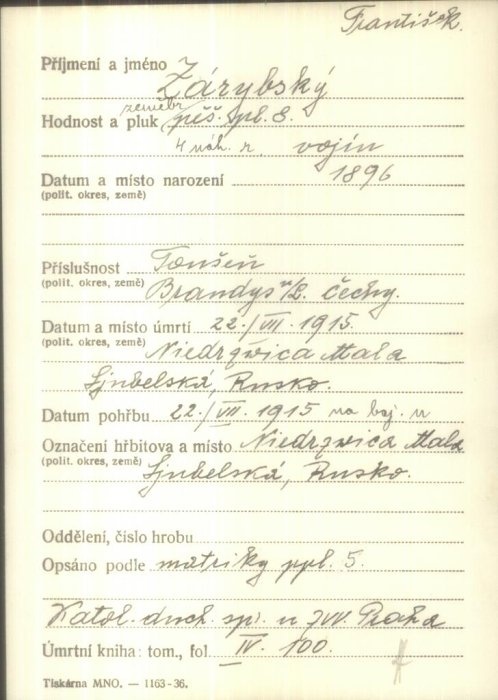 František.
Příjmení a jméno Zárybský
zeměbr.
Hodnost a pluk pěš. pl. 8.
4 náh. r., vojín
Datum a místo narození 1896
(polit. okres, země)
Příslušnost Toušeň
(polit. okres, země) Brandys n/L. Čechy.
Datum a místo úmrtí 22./VII. 1915.
(polit. okres, země) Niedrzwica Mala
Ljubelská, Rusko.
Datum pohřbu 22./VII. 1915 na boj. u
Označení hřbitova a místo Niedrzwica Mala
(polit. okres, země) Ljubelská, Rusko.
Oddělení, číslo hrobu
Opsáno podle matriky ppl. 5.
Katol. duch. sp. u ZVV. Praha
Úmrtní kniha: tom., fol. IV. 100.
Tiskárna MNO. — 1163-36.